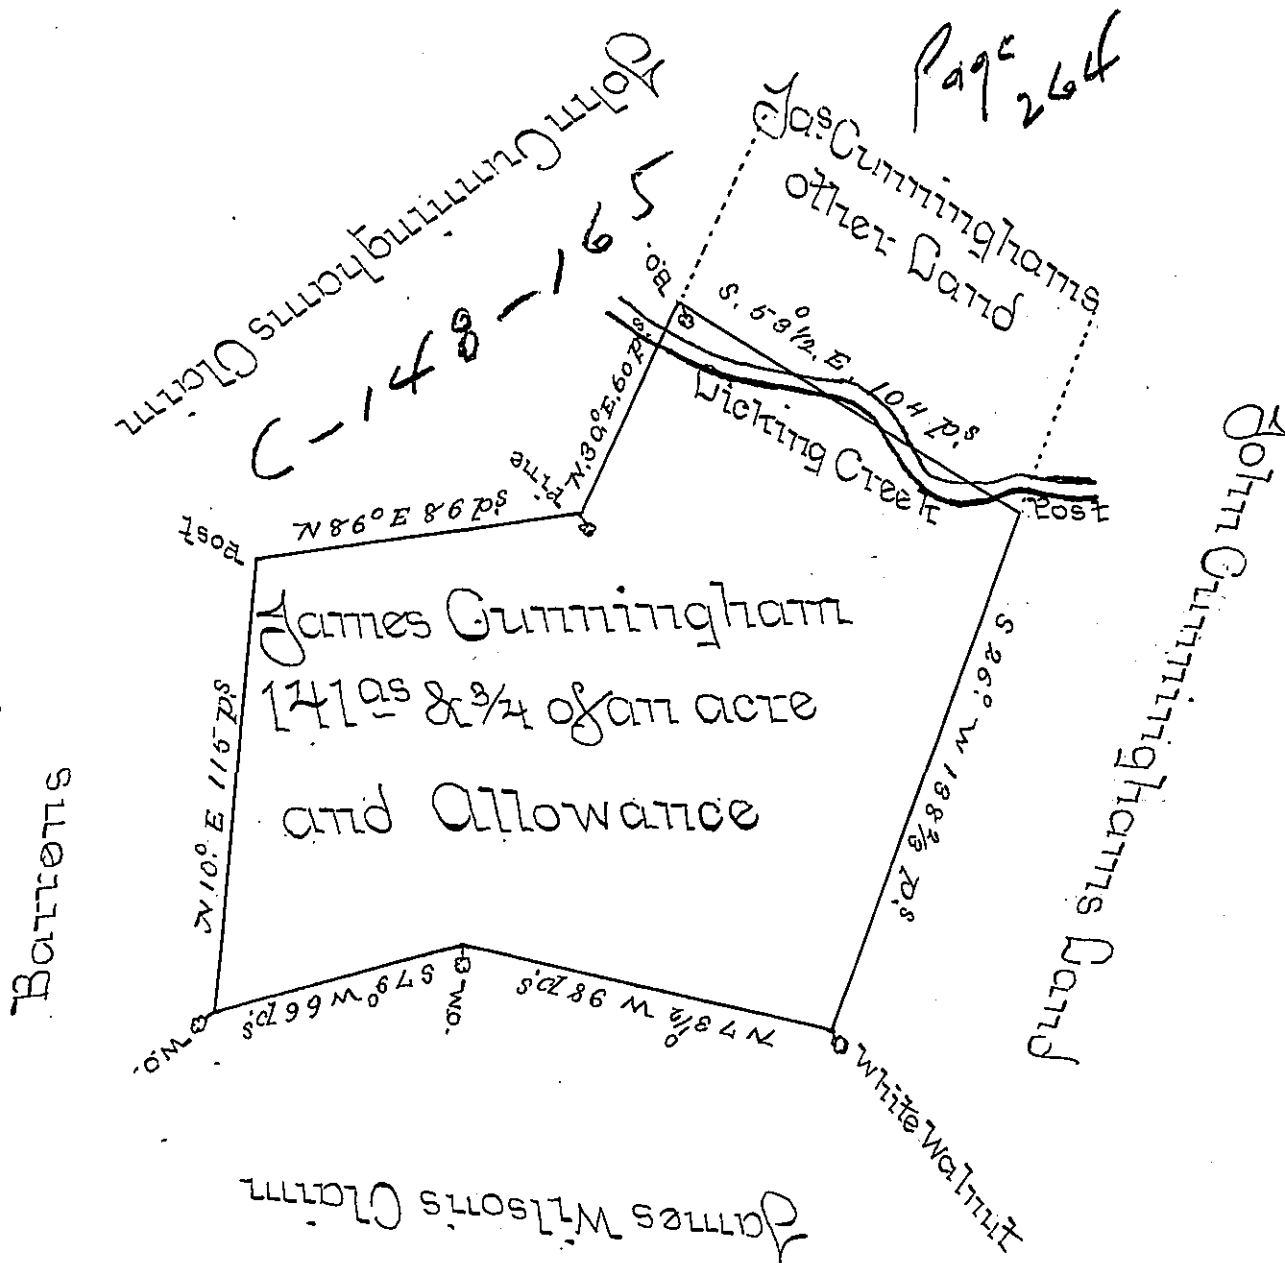 Page 264
John Cunninghams Claim
Jas. Cunninghams
other Land
C-148-165
B.o.
S. 53°1/2. E. 104 p.s
N. 30.° E. 60 p.s.
Licking Creek
Pine
Post
N 89° E 89 p.s
Post
James Cunningham
141 as & 3/4 of an acre
and Allowance
N 10.° E 115 p.s
S 26.° W 138 2/3 p.s
John Cunninghams Land
Barrens
S 79° W 66 p.s.
N 73 1/2° W 98 p.s
W.o.
W.o.
White Walnut
James Wilson's Claim